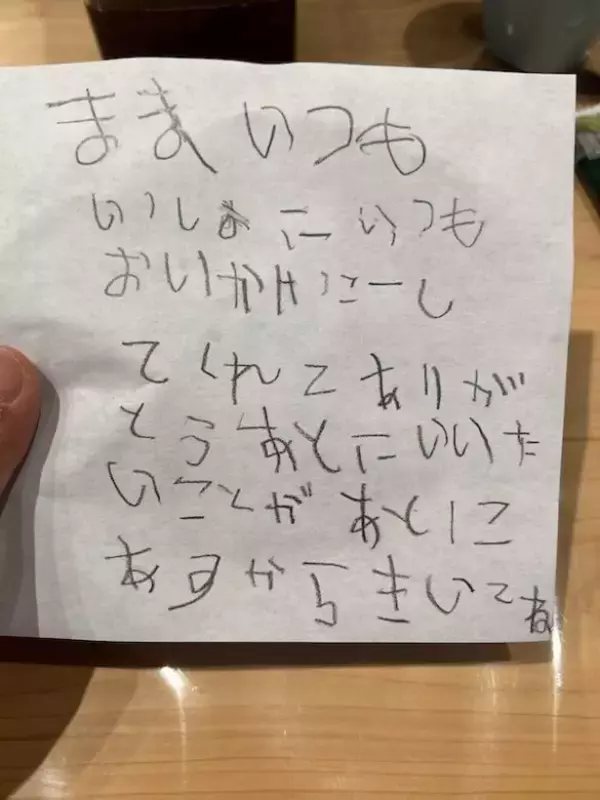 まま いつも
いつしょに いつも
おいかけにーし
てくれて ありが
とう あとに いいた
いことが あとに
あすから きいてね